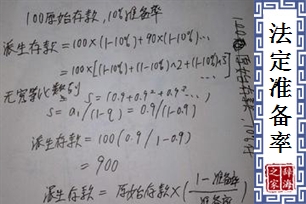 100原始存款,10%准备率
派生存款=100×(1-10%)+90×(1-10%)...
=100×[(1-10%)+(1-10%)^2+(1-10%)^3]...
无穷等比数列 S=(0.9+0.9²+0.9³...)
S=a₁/(1-q)=0.9/(1-0.9)
派生存款=100(0.9/1-0.9)
=900
派生存款=原始存款×(1-准备率/准备率)
法定准备率
辞海之家